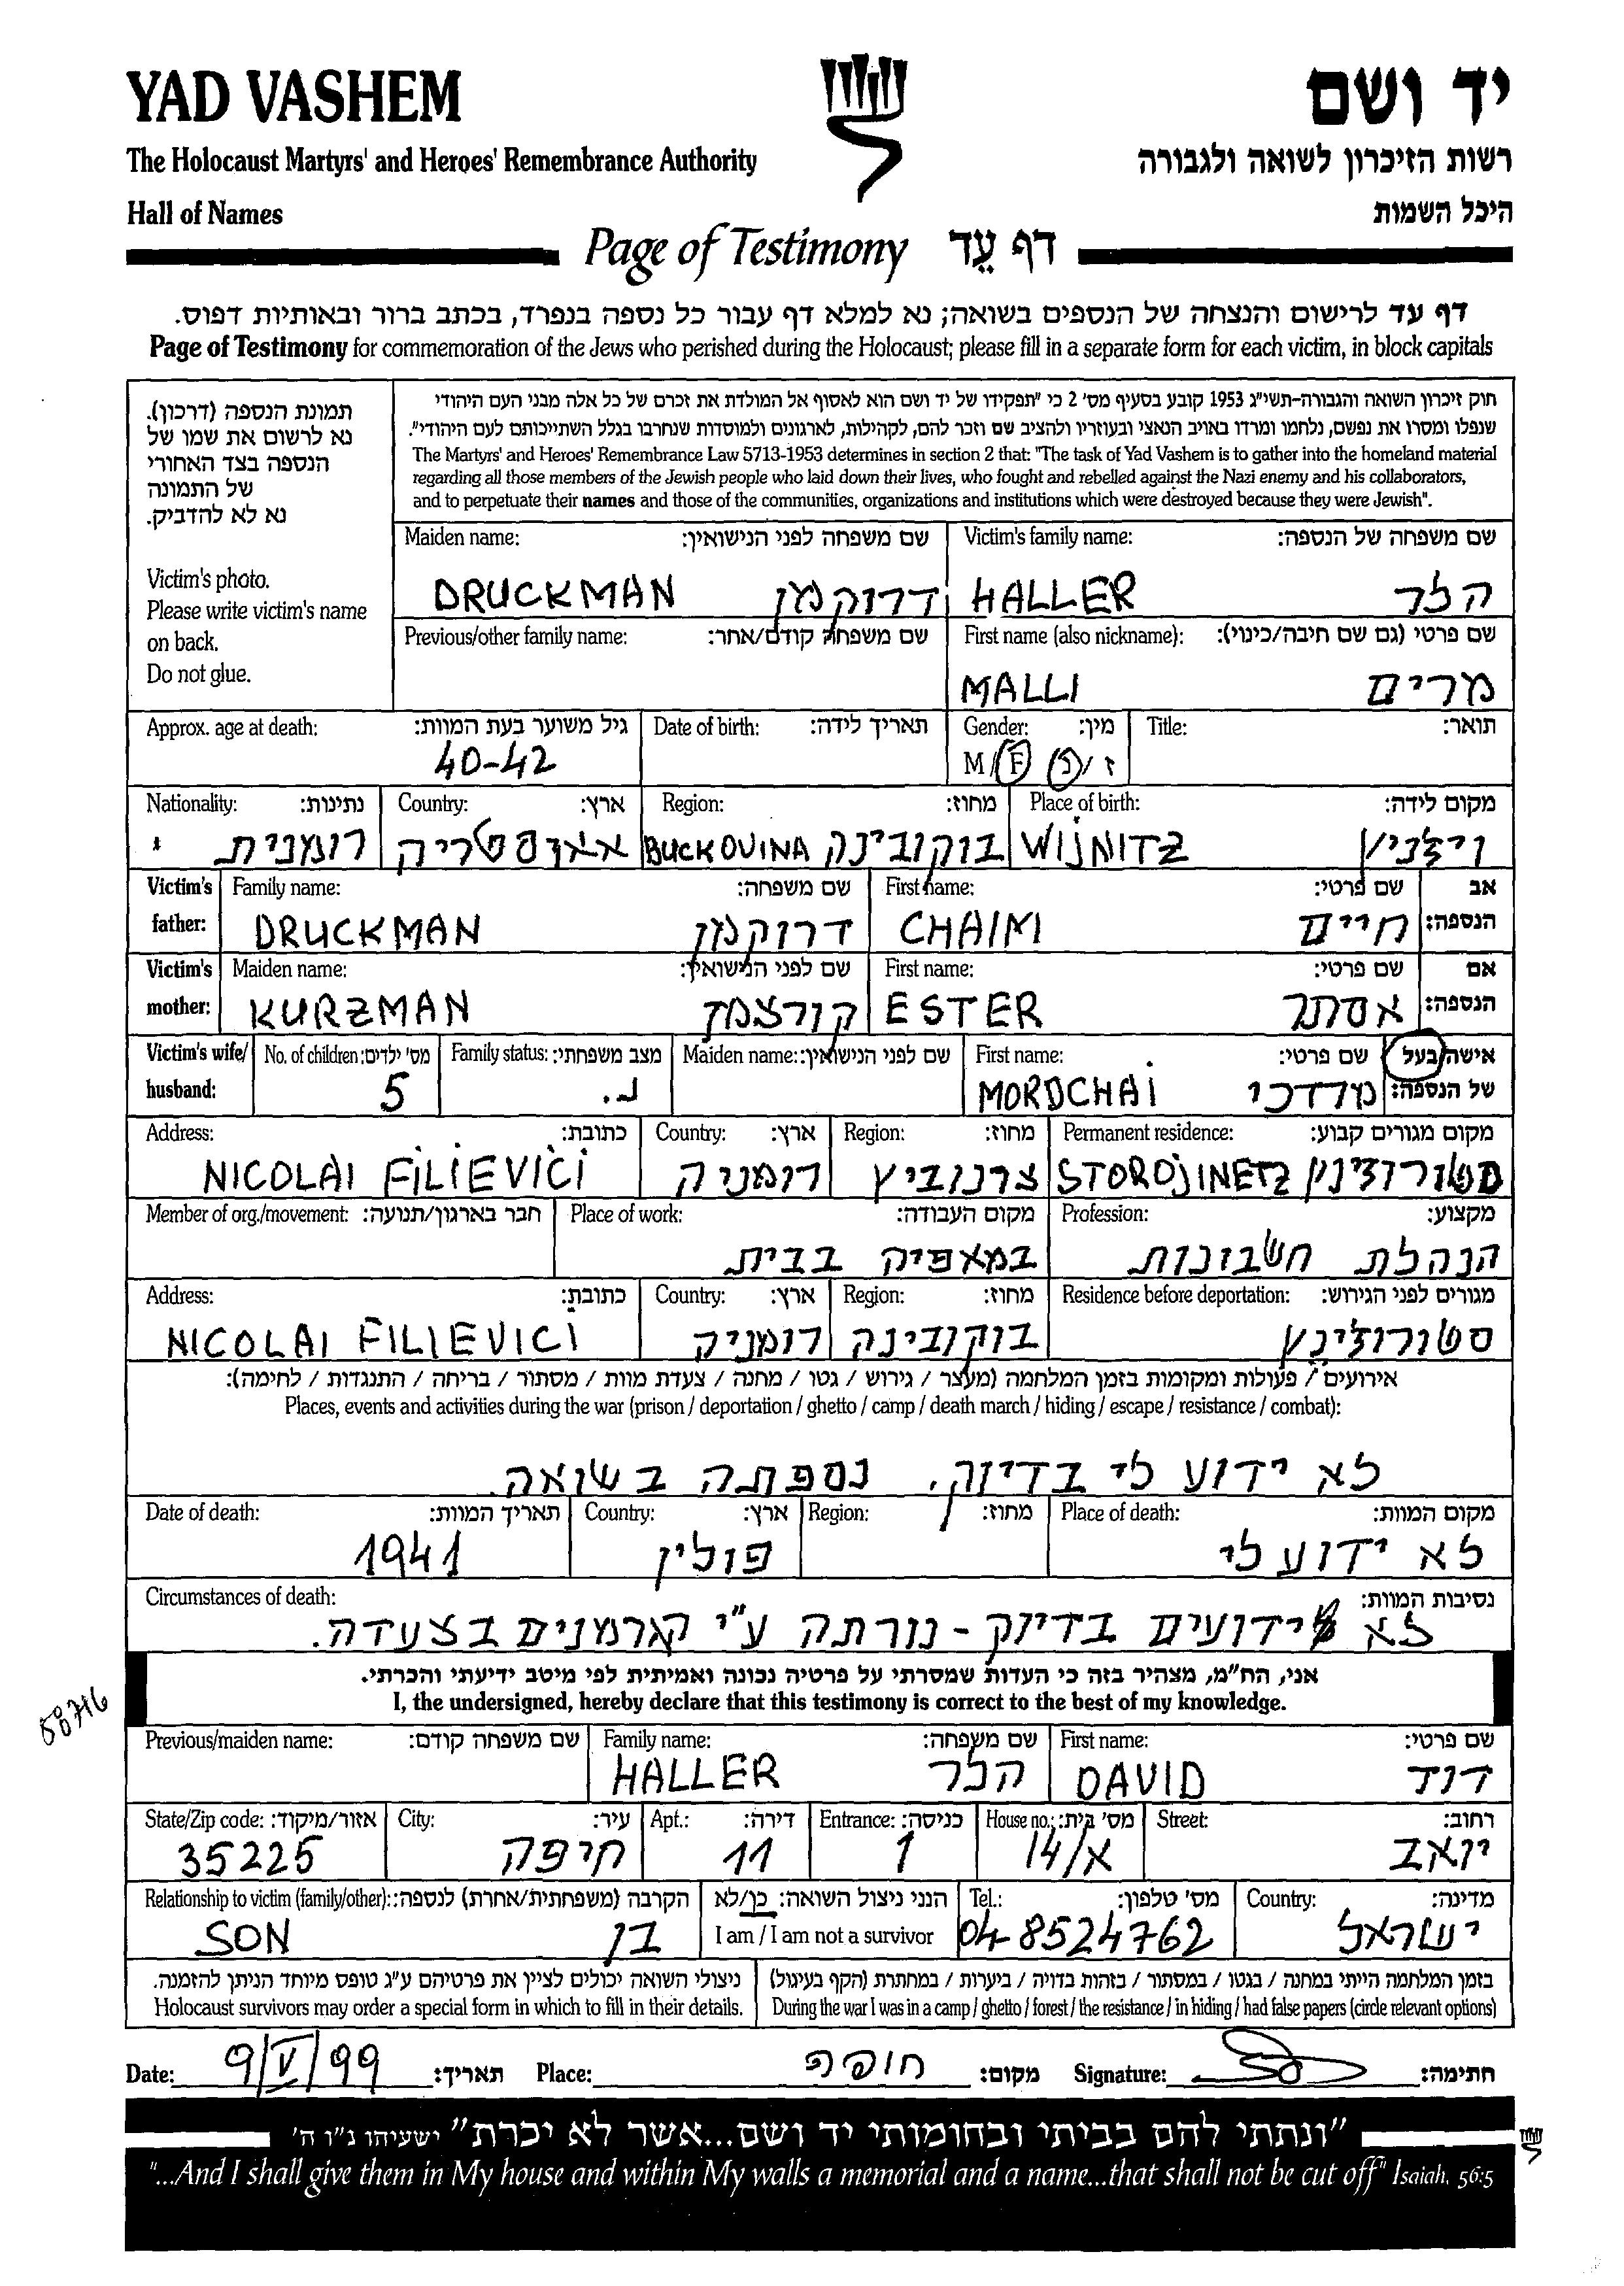 YAD VASHEM יד ושם
The Holocaust Martyrs' and Heroes' Remembrance Authority רשות הזיכרון לשואה ולגבורה
Hall of Names היכל השמות
Page of Testimony דף עֵד
דף עד לרישום והנצחה של הנספים בשואה; נא למלא דף עבור כל נספה בנפרד, בכתב ברור ובאותיות דפוס.
Page of Testimony for commemoration of the Jews who perished during the Holocaust; please fill in a separate form for each victim, in block capitals
תמונת הנספה (דרכון).
נא לרשום את שמו של
הנספה בצד האחורי
של התמונה
נא לא להדביק.
Victim's photo.
Please write victim's name
on back.
Do not glue.
חוק זיכרון השואה והגבורה-תשי"ג 1953 קובע בסעיף מס' 2 כי "תפקידו של יד ושם הוא לאסוף אל המולדת את זכרם של כל אלה מבני העם היהודי
שנפלו ומסרו את נפשם, נלחמו ומרדו באויב הנאצי ובעוזריו ולהציב שם וזכר להם, לקהילות, לארגונים ולמוסדות שנחרבו בגלל השתייכותם לעם היהודי".
The Martyrs' and Heroes' Remembrance Law 5713-1953 determines in section 2 that: "The task of Yad Vashem is to gather into the homeland material
regarding all those members of the Jewish people who laid down their lives, who fought and rebelled against the Nazi enemy and his collaborators,
and to perpetuate their names and those of the communities, organizations and institutions which were destroyed because they were Jewish".
Maiden name: שם משפחה לפני הנישואין: Victim's family name: שם משפחה של הנספה:
DRUCKMAN דרוקמן HALLER הלר
Previous/other family name: שם משפחה קודם/אחר: First name (also nickname): שם פרטי (גם שם חיבה/כינוי):
MALLI מרים
Approx. age at death: גיל משוער בעת המוות: Date of birth: תאריך לידה: Gender: מין: Title: תואר:
40-42 M/F ז/נ
Nationality: נתינות: Country: ארץ: Region: מחוז: Place of birth: מקום לידה:
רומנית אאוסטריה BUCKOVINA בוקובינה WIJNITZ ויז'ניץ
Victim's Family name: שם משפחה: First name: שם פרטי: אב
father: DRUCKMAN דרוקמן CHAIM חיים הנספה:
Victim's Maiden name: שם לפני הנישואין: First name: שם פרטי: אם
mother: KURZMAN קורצמן ESTER אסתר הנספה:
Victim's wife/ No. of children: מס' ילדים: Family status: מצב משפחתי: Maiden name: שם לפני הנישואין: First name: שם פרטי: אישה/בעל
husband: 5 נ. MORDCHAI מרדכי של הנספה:
Address: כתובת: Country: ארץ: Region: מחוז: Permanent residence: מקום מגורים קבוע:
NICOLAI FILIEVICI רומניה צרנוביץ STOROJINETZ סטורוז'ינץ
Member of org./movement: חבר בארגון/תנועה: Place of work: מקום העבודה: Profession: מקצוע:
במאפיה בבית הנהלת חשבונות
Address: כתובת: Country: ארץ: Region: מחוז: Residence before deportation: מגורים לפני הגירוש:
NICOLAI FILIEVICI רומניה בוקובינה סטורוז'ינץ
אירועים / פעולות ומקומות בזמן המלחמה (מעצר / גירוש / גטו / מחנה / צעדת מוות / מסתור / בריחה / התנגדות / לחימה):
Places, events and activities during the war (prison / deportation / ghetto / camp / death march / hiding / escape / resistance / combat):
לא ידוע לי בדיוק. נספתה בשואה.
Date of death: תאריך המוות: Country: ארץ: Region: מחוז: Place of death: מקום המוות:
1941 פולין לא ידוע לי
Circumstances of death: נסיבות המוות:
לא ידועים בדיוק - נורתה ע"י הגרמנים בצעדה.
אני, הח"מ, מצהיר בזה כי העדות שמסרתי על פרטיה נכונה ואמיתית לפי מיטב ידיעתי והכרתי.
I, the undersigned, hereby declare that this testimony is correct to the best of my knowledge.
58716
Previous/maiden name: שם משפחה קודם: Family name: שם משפחה: First name: שם פרטי:
HALLER הלר DAVID דוד
State/Zip code: אזור/מיקוד: City: עיר: Apt.: דירה: Entrance: כניסה: House no.: מס' בית: Street: רחוב:
35225 חיפה 11 1 14/א יואב
Relationship to victim (family/other): הקרבה (משפחתית/אחרת) לנספה: הנני ניצול השואה: כן/לא Tel.: מס' טלפון: Country: מדינה:
SON בן I am / I am not a survivor 04 8524762 ישראל
ניצולי השואה יכולים לציין את פרטיהם ע"ג טופס מיוחד הניתן להזמנה. בזמן המלחמה הייתי במחנה / בגטו / במסתור / בזהות בדויה / ביערות / במחתרת (הקף בעיגול)
Holocaust survivors may order a special form in which to fill in their details. During the war I was in a camp / ghetto / forest / the resistance / in hiding / had false papers (circle relevant options)
Date: 9/V/99 תאריך: Place: חיפה מקום: Signature: חתימה:
"ונתתי להם בביתי ובחומותי יד ושם...אשר לא יכרת" ישעיהו נ"ו ה'
"...And I shall give them in My house and within My walls a memorial and a name...that shall not be cut off" Isaiah, 56:5